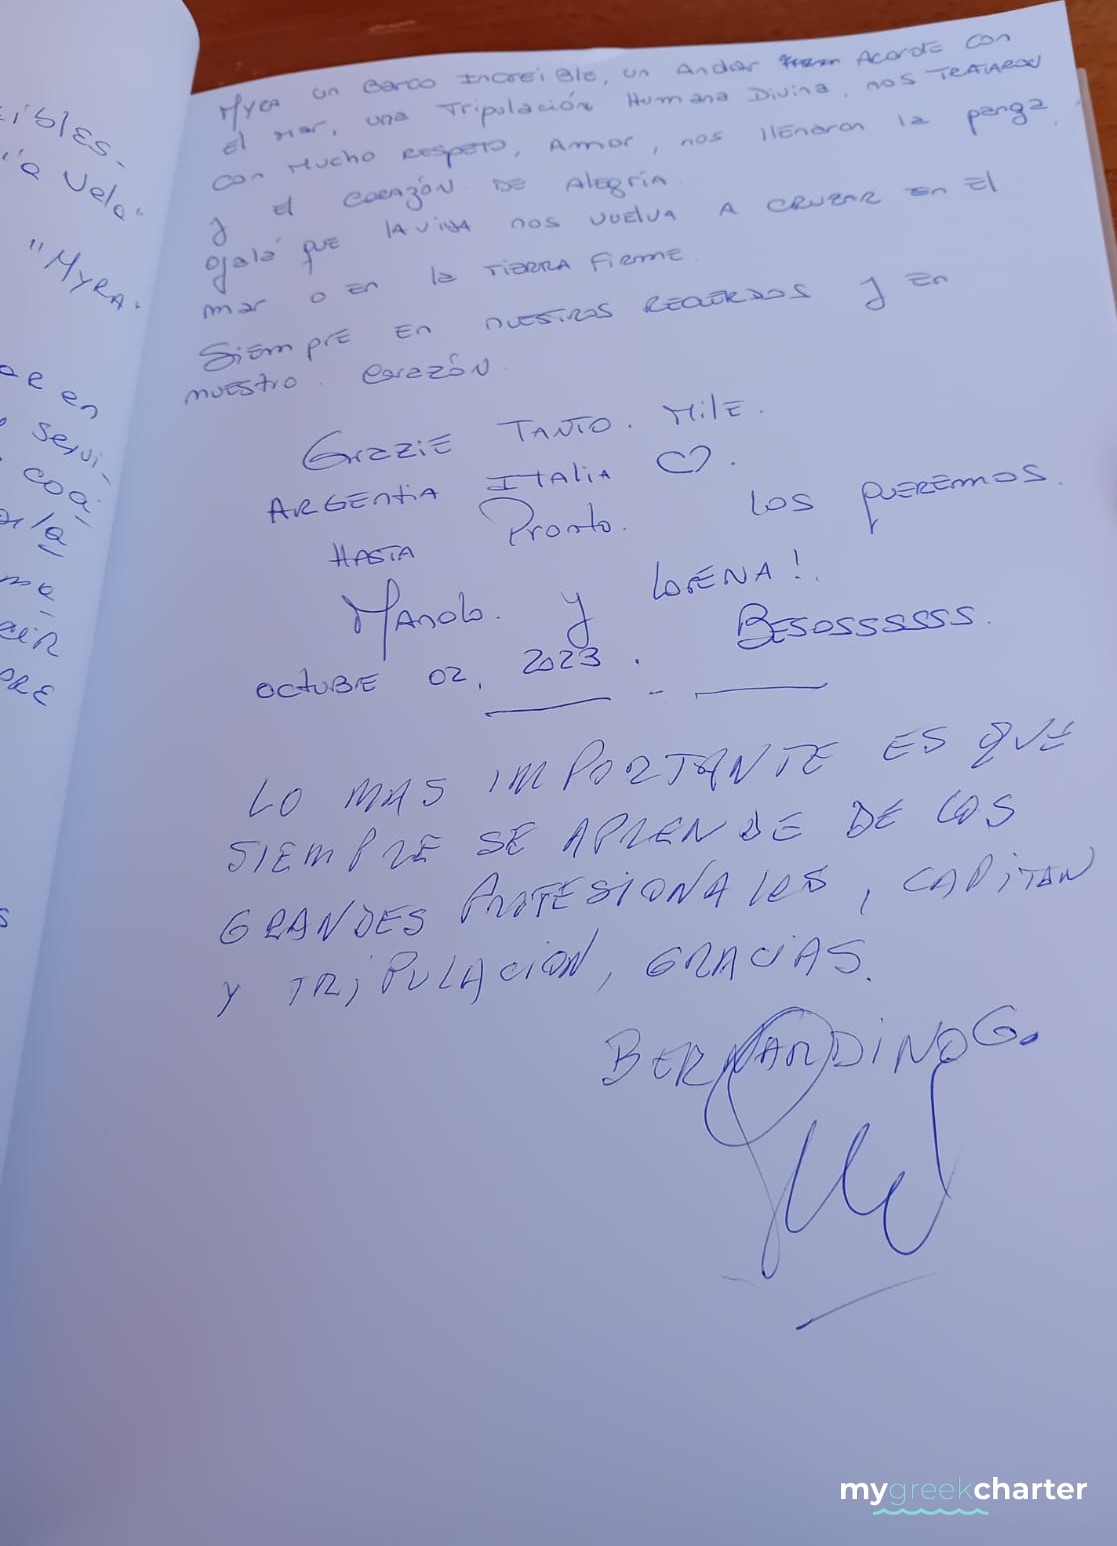 ibles-
a vela"
"MYRA.
en
servi-
coa-
PRE
Myra un Barco Increible, un Andar Acorde con
el mar, una Tripulación Humana Divina, nos TRATARON
con Mucho RESPETO, Amor, nos llenaron la panza
y el CORAZÓN DE Alegria.
Ojalá que LA VIDA nos VUELVA A CRUZAR en El
mar o en la TIERRA FIRME.
Siempre En nuestros RECUERDOS y En
nuestro. Corazón.
Grazzie TANTO. Mile.
ARGENtiA ITAliA ♡.
HASTA Pronto. los QUEREMOS.
Manolo. y LORENA!.
OCTUBIE 02, 2023. BESOSSSSSS.
LO MAS IMPORTANTE ES QUE
SIEMPRE SE APRENDE DE LOS
GRANDES PROFESIONALES, CAPITAN
Y TRIPULACION, GRACIAS.
BERNARDINO G.
mygreekcharter